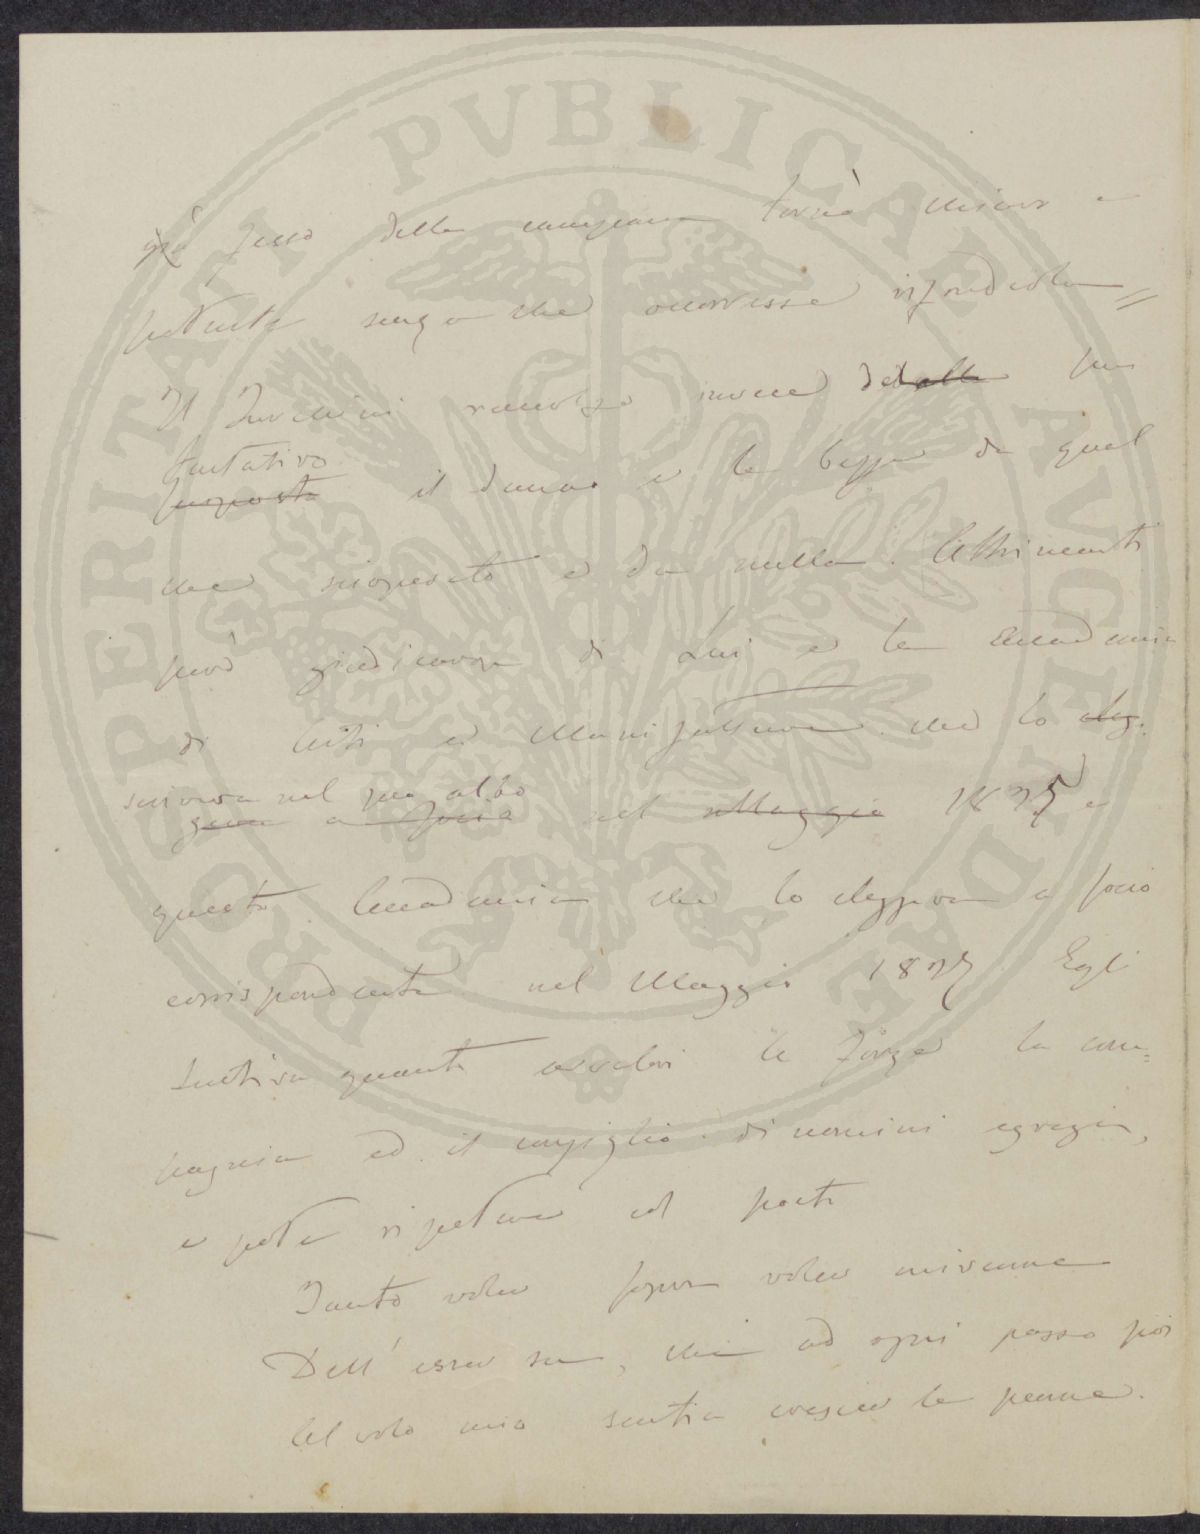 PROSPERITATI PVBLICAE AVGENDAE
già fesso della campana tornò sincero e
potente senza che occorresse rifonderla=
Il Turchini raccolse invece del alla suo
tentativo
proposta il danno e le beffe da quel
che scioperato e da nulla. Altrimenti
però giudicava di Lui e la Accademia
di Arti e Manifatture che lo eleg-
scriveva nel suo albo
geva a socio nel Maggio 1875 e
questa Accademia che lo eleggeva a socio
corrispondente nel Maggio 1875. Egli
sentiva quanto avvalori le forze la com=
pagnia ed il consiglio di uomini egregi,
e poté ripetere col poeta
Tanto voler sopra voler mi venne
Dell' esser su, che ad ogni passo poi
Al volo mio sentia crescer le penne.